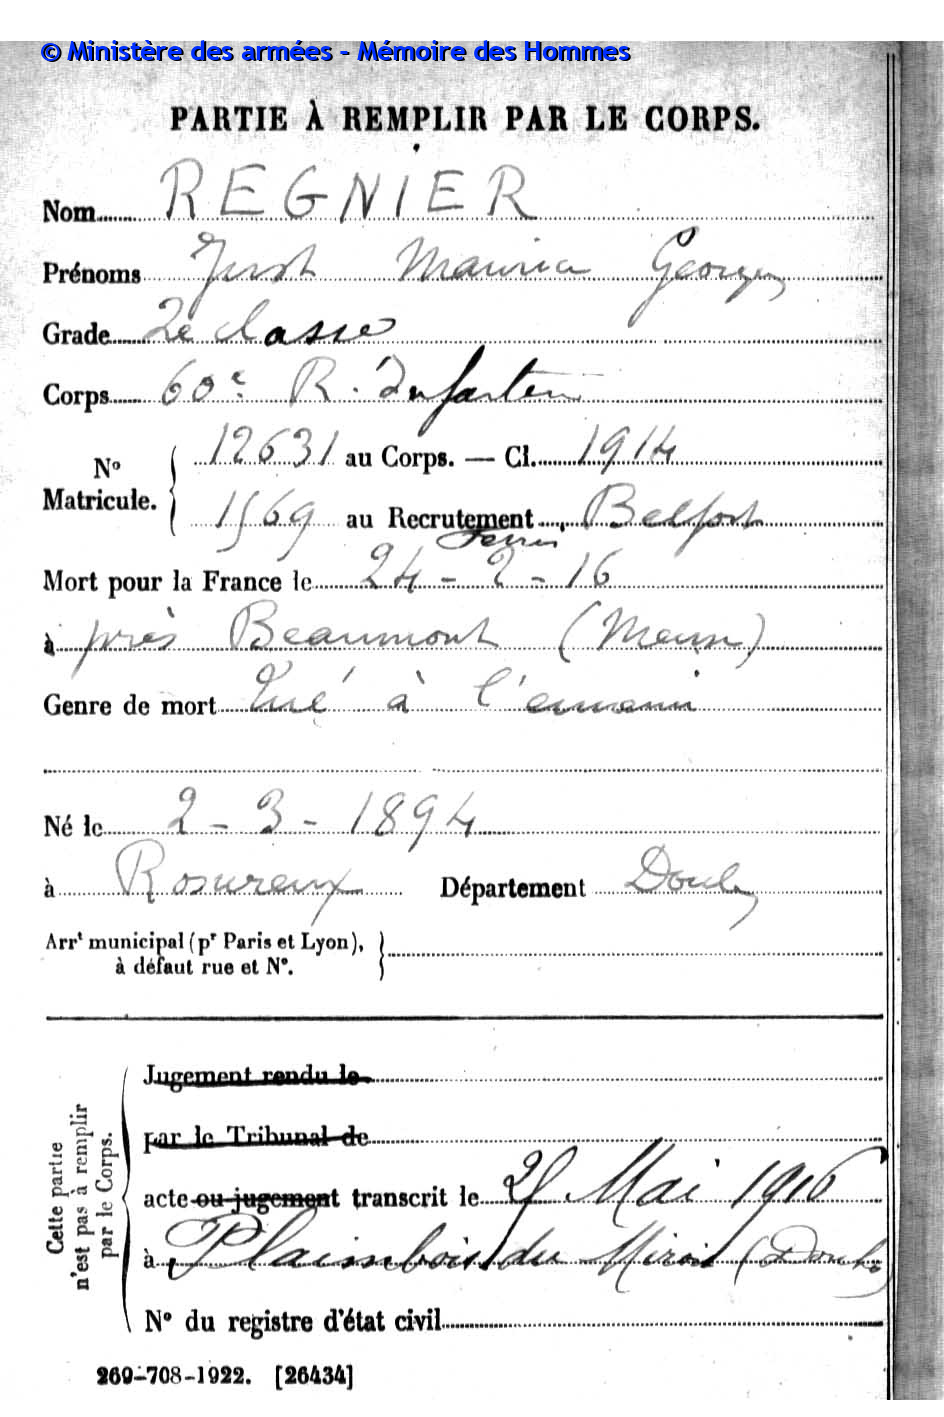 © Ministère des armées - Mémoire des Hommes
PARTIE À REMPLIR PAR LE CORPS.
Nom REGNIER
Prénoms Just Maurice Georges
Grade 2e classe
Corps 60e R. Infanterie
N° Matricule. 12631 au Corps. — Cl. 1914
1569 au Recrutement Belfort
Mort pour la France le 24-2-16
à près Beaumont (Meuse)
Genre de mort Tué à l'ennemi
Né le 2-3-1894
à Rosureux Département Doubs
Arrt municipal (pr Paris et Lyon),
à défaut rue et N°.
Cette partie
n'est pas à remplir
par le Corps.
Jugement rendu le
par le Tribunal de
acte ou jugement transcrit le 25 Mai 1916
à Plaimbois du Miroir (Doubs)
N° du registre d'état civil
260-708-1922. [26434]